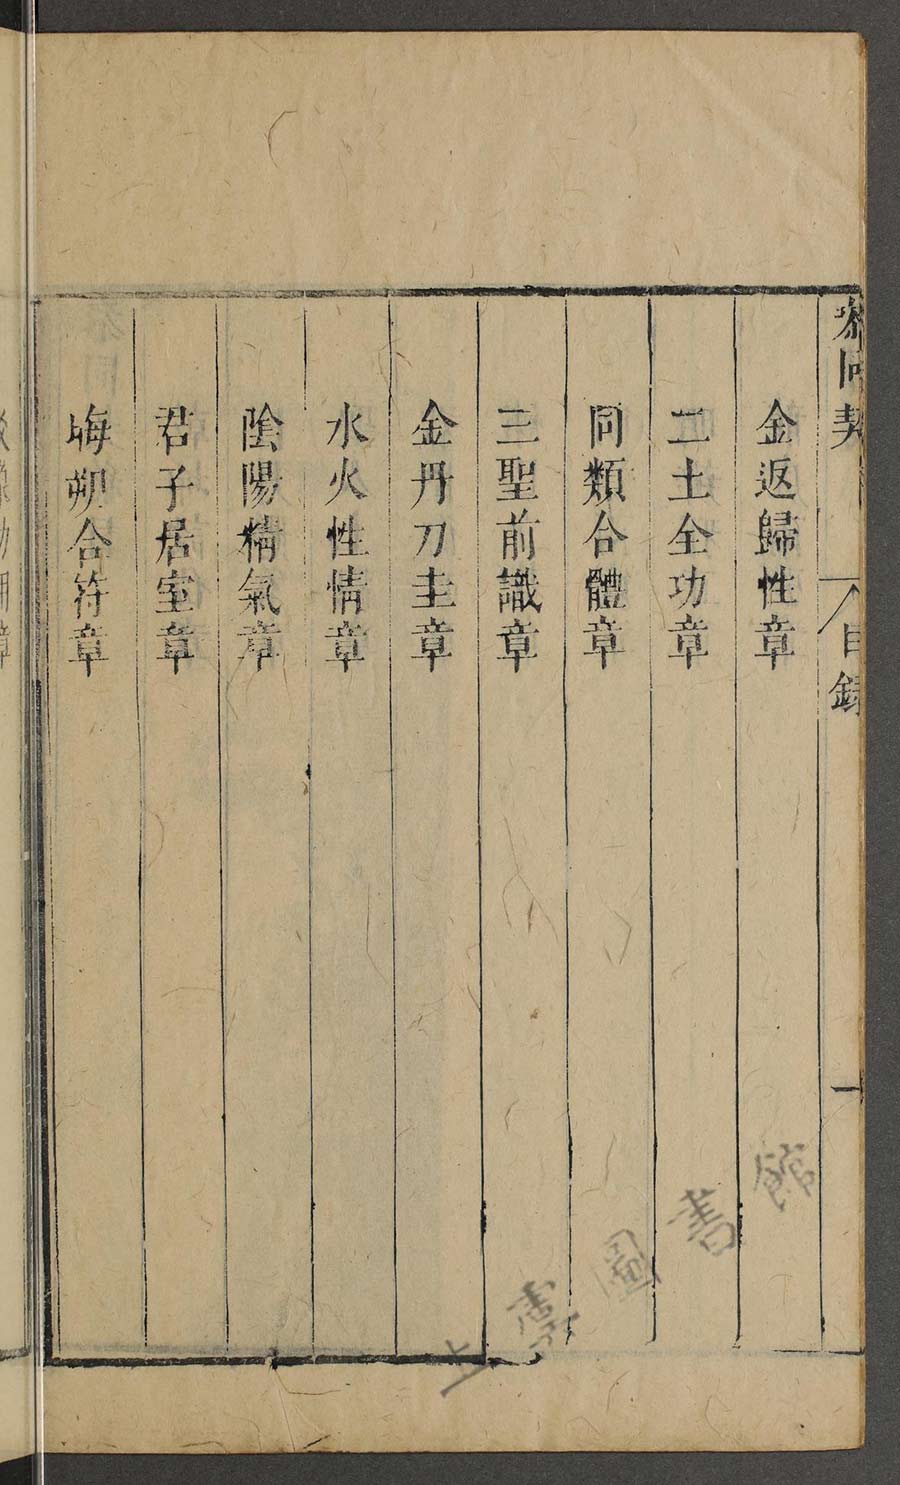 參同契 目錄 一
金返歸性章
二土全功章
同類合體章
三聖前識章
金丹刀圭章
水火性情章
陰陽精氣章
君子居室章
晦朔合符章
圖書館